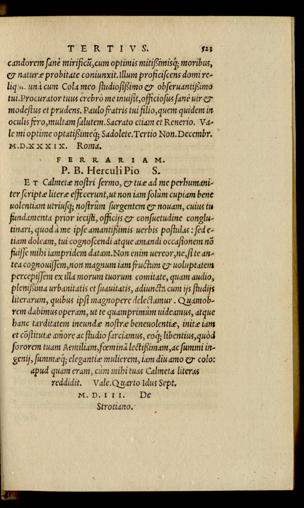 TERTIVS. 523
candorem sanè mirificū, cum optimis mitißimisq́; moribus,
& naturæ probitate coniunxit. Illum proficiscens domi re-
liqui unà cum Cola meo studiosißimo & obseruantißimo
tui. Procurator tuus crebrò me inuisit, officiosus sanè uir &
modestus et prudens. Paulo fratris tui filio, quem quidem in
oculis fero, multam salutem. Sacrato etiam et Renerio. Va-
le mi optime optatißimeq́; Sadolete. Tertio Non. Decembr.
M.D.XXXIX. Roma.
FERRARIAM.
P. B. Herculi Pio S.
ET Calmetæ nostri sermo, & tuæ ad me perhumani-
ter scriptæ literæ effecerunt, ut non iam solùm cupiam bene
uolentiam utriusq; nostrûm surgentem & nouam, cuius tu
fundamenta prior iecisti, officijs & consuetudine conglu-
tinari, quod à me ipse amantißimis uerbis postulas: sed e-
tiam doleam, tui cognoscendi atque amandi occasionem nō
fuisse mihi iampridem datam. Non enim uereor, ne, si te an-
tea cognouissem, non magnum iam fructum & uoluptatem
percepissem ex illa morum tuorum comitate, quam audio,
plenißima urbanitatis et suauitatis, adiuncta cum ijs studijs
literarum, quibus ipse magnopere delectamur. Quamob-
rem dabimus operam, ut te quamprimùm uideamus, atque
hanc tarditatem ineundæ nostræ beneuolentiæ, initæ iam
et cōstitutæ amore ac studio sarciamus, eoq́; libentius, quòd
sororem tuam Aemiliam, fœminā lectißimam, ac summi in-
genij, summæq́; elegantiæ mulierem, iam diu amo & colo:
apud quam eram, cùm mihi tuas Calmeta literas
reddidit. Vale. Quarto Idus Sept.
M. D. III. De
Strotiano.